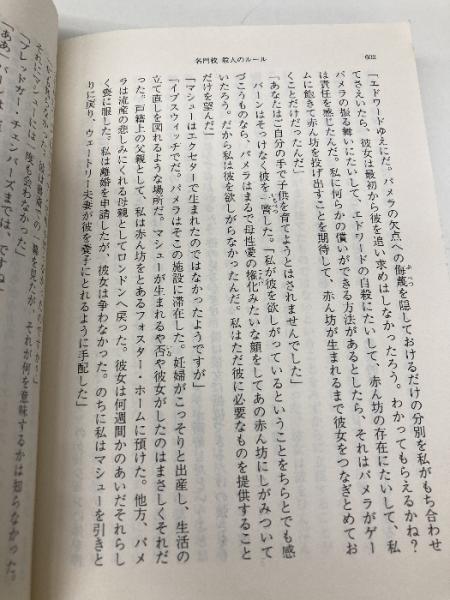 名門校 殺人のルール
602
「エドワードゆえにだ。パメラの欠点への侮蔑を隠しておけるだけの分別を私がもち合わせ
てさえいたら、彼女は最初から彼を追い求めはしなかったろう。わかってもらえるかね?
パメラの振る舞いにたいして、エドワードの自殺にたいして、赤ん坊の存在にたいして、私
は責任を感じたんだ。私に何らかの償いができる方法があるとしたら、それはパメラがゲー
ムに飽きて赤ん坊を投げ出すことを期待して、赤ん坊が生まれるまで彼女をつなぎとめてお
くことだけだったんだ」
「あなたはご自分の手で子供を育てようとはされませんでした」
バーンはそっけなく彼を一瞥した。「私が彼を欲しがっているということをちらとでも感
づこうものなら、パメラはまるで母性愛の権化みたいな顔をしてあの赤ん坊にしがみついて
いたろう。だから私は彼を欲しがらなかったんだ。私はただ彼に必要なものを提供すること
だけを望んだ」
「マシューはエクセターで生まれたのではなかったようですが」
「イプスウィッチでだ。パメラはそこの施設に滞在した。妊婦がこっそりと出産し、生活の
立て直しを図れるような場所だ。マシューが生まれるや否や彼女がしたのはまさしくそれだ
った。戸籍上の父親として、私は赤ん坊をとあるフォスター・ホームに預けた。他方、パメ
ラは流産の悲しみにくれる母親としてロンドンへ戻った。彼女は何週間かのあいだそれらし
く喪に服した。私は離婚を申請したが、彼女は争わなかった。のちに私はマシューを引きと
りに戻り、ウェートリー夫妻が彼を養子にとれるように手配した」
一度も会わなかった」
の一稿を見たが、それが何を意味するかは知らなかった。
「フレッドガー・チェンバーズまでは、ですね」
「ああ」